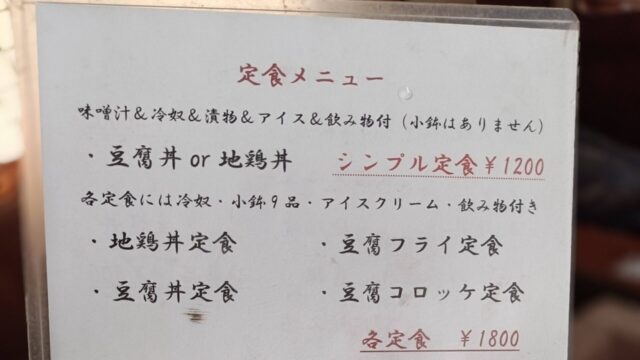 定食メニュー
味噌汁＆冷奴＆漬物＆アイス＆飲み物付（小鉢はありません）
・豆腐丼 or 地鶏丼　シンプル定食￥1200
各定食には冷奴・小鉢９品・アイスクリーム・飲み物付き
・地鶏丼定食　・豆腐フライ定食
・豆腐丼定食　・豆腐コロッケ定食
各定食　￥1800